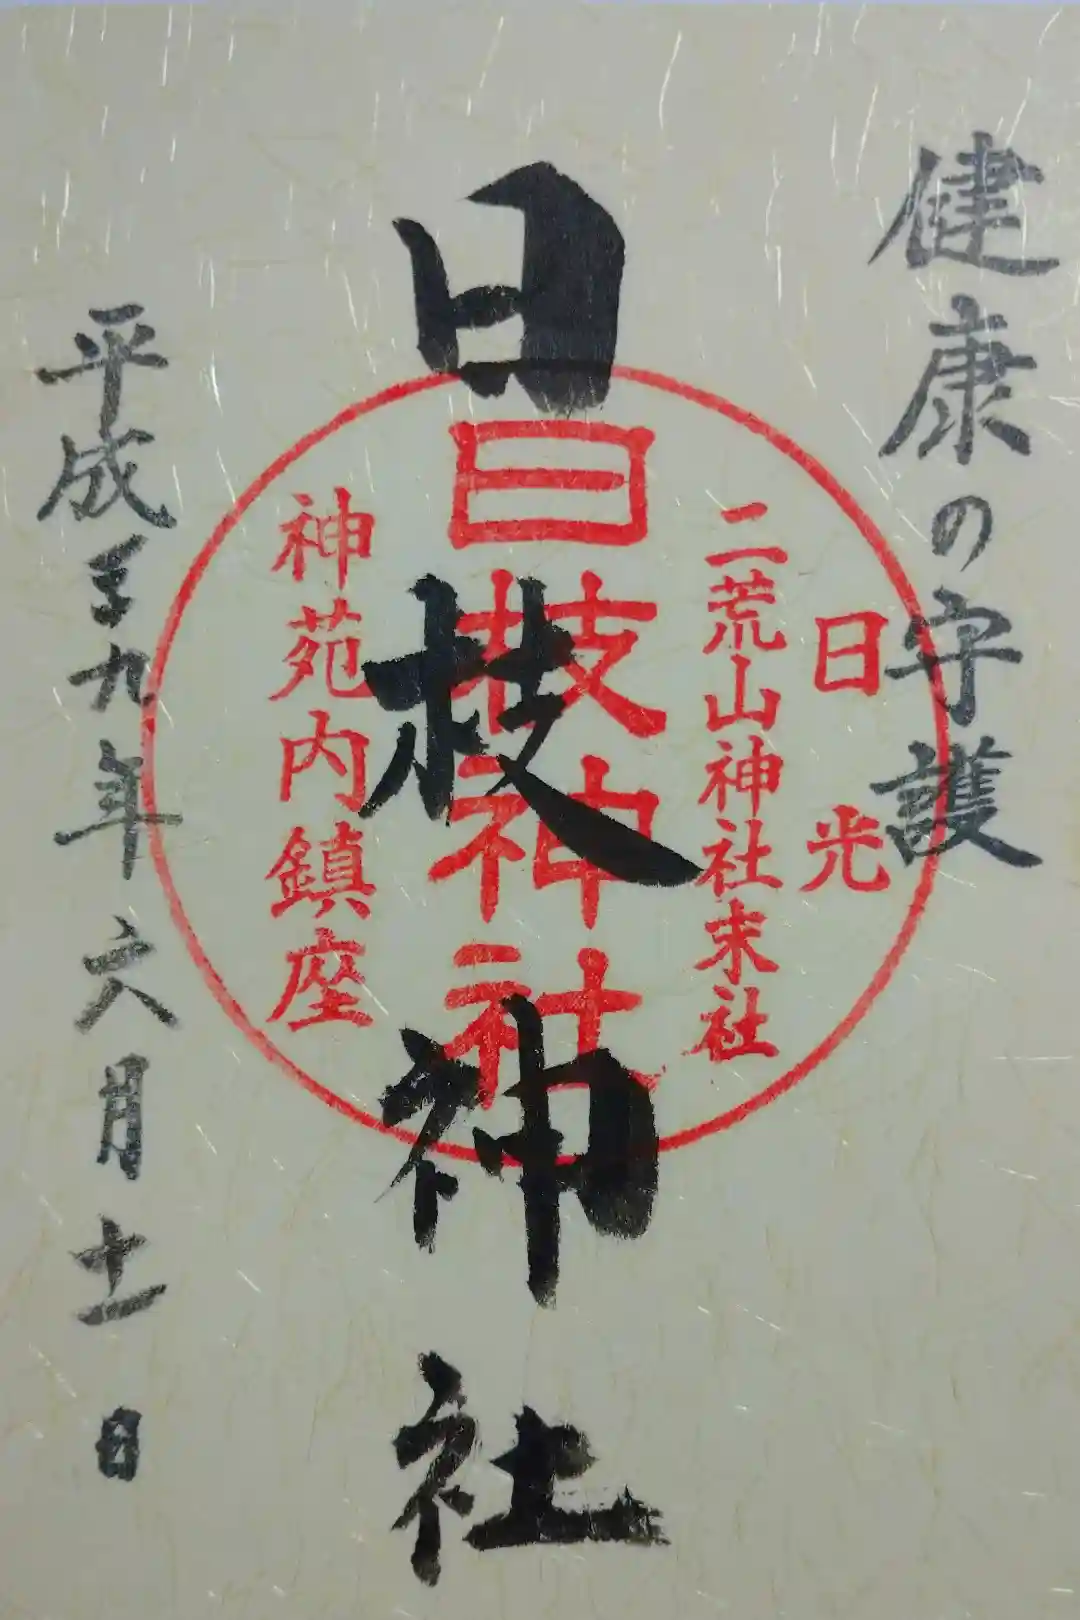 健康の守護
日光
二荒山神社末社
日枝神社
日枝神社
神苑内鎮座
平成二十九年六月十一日